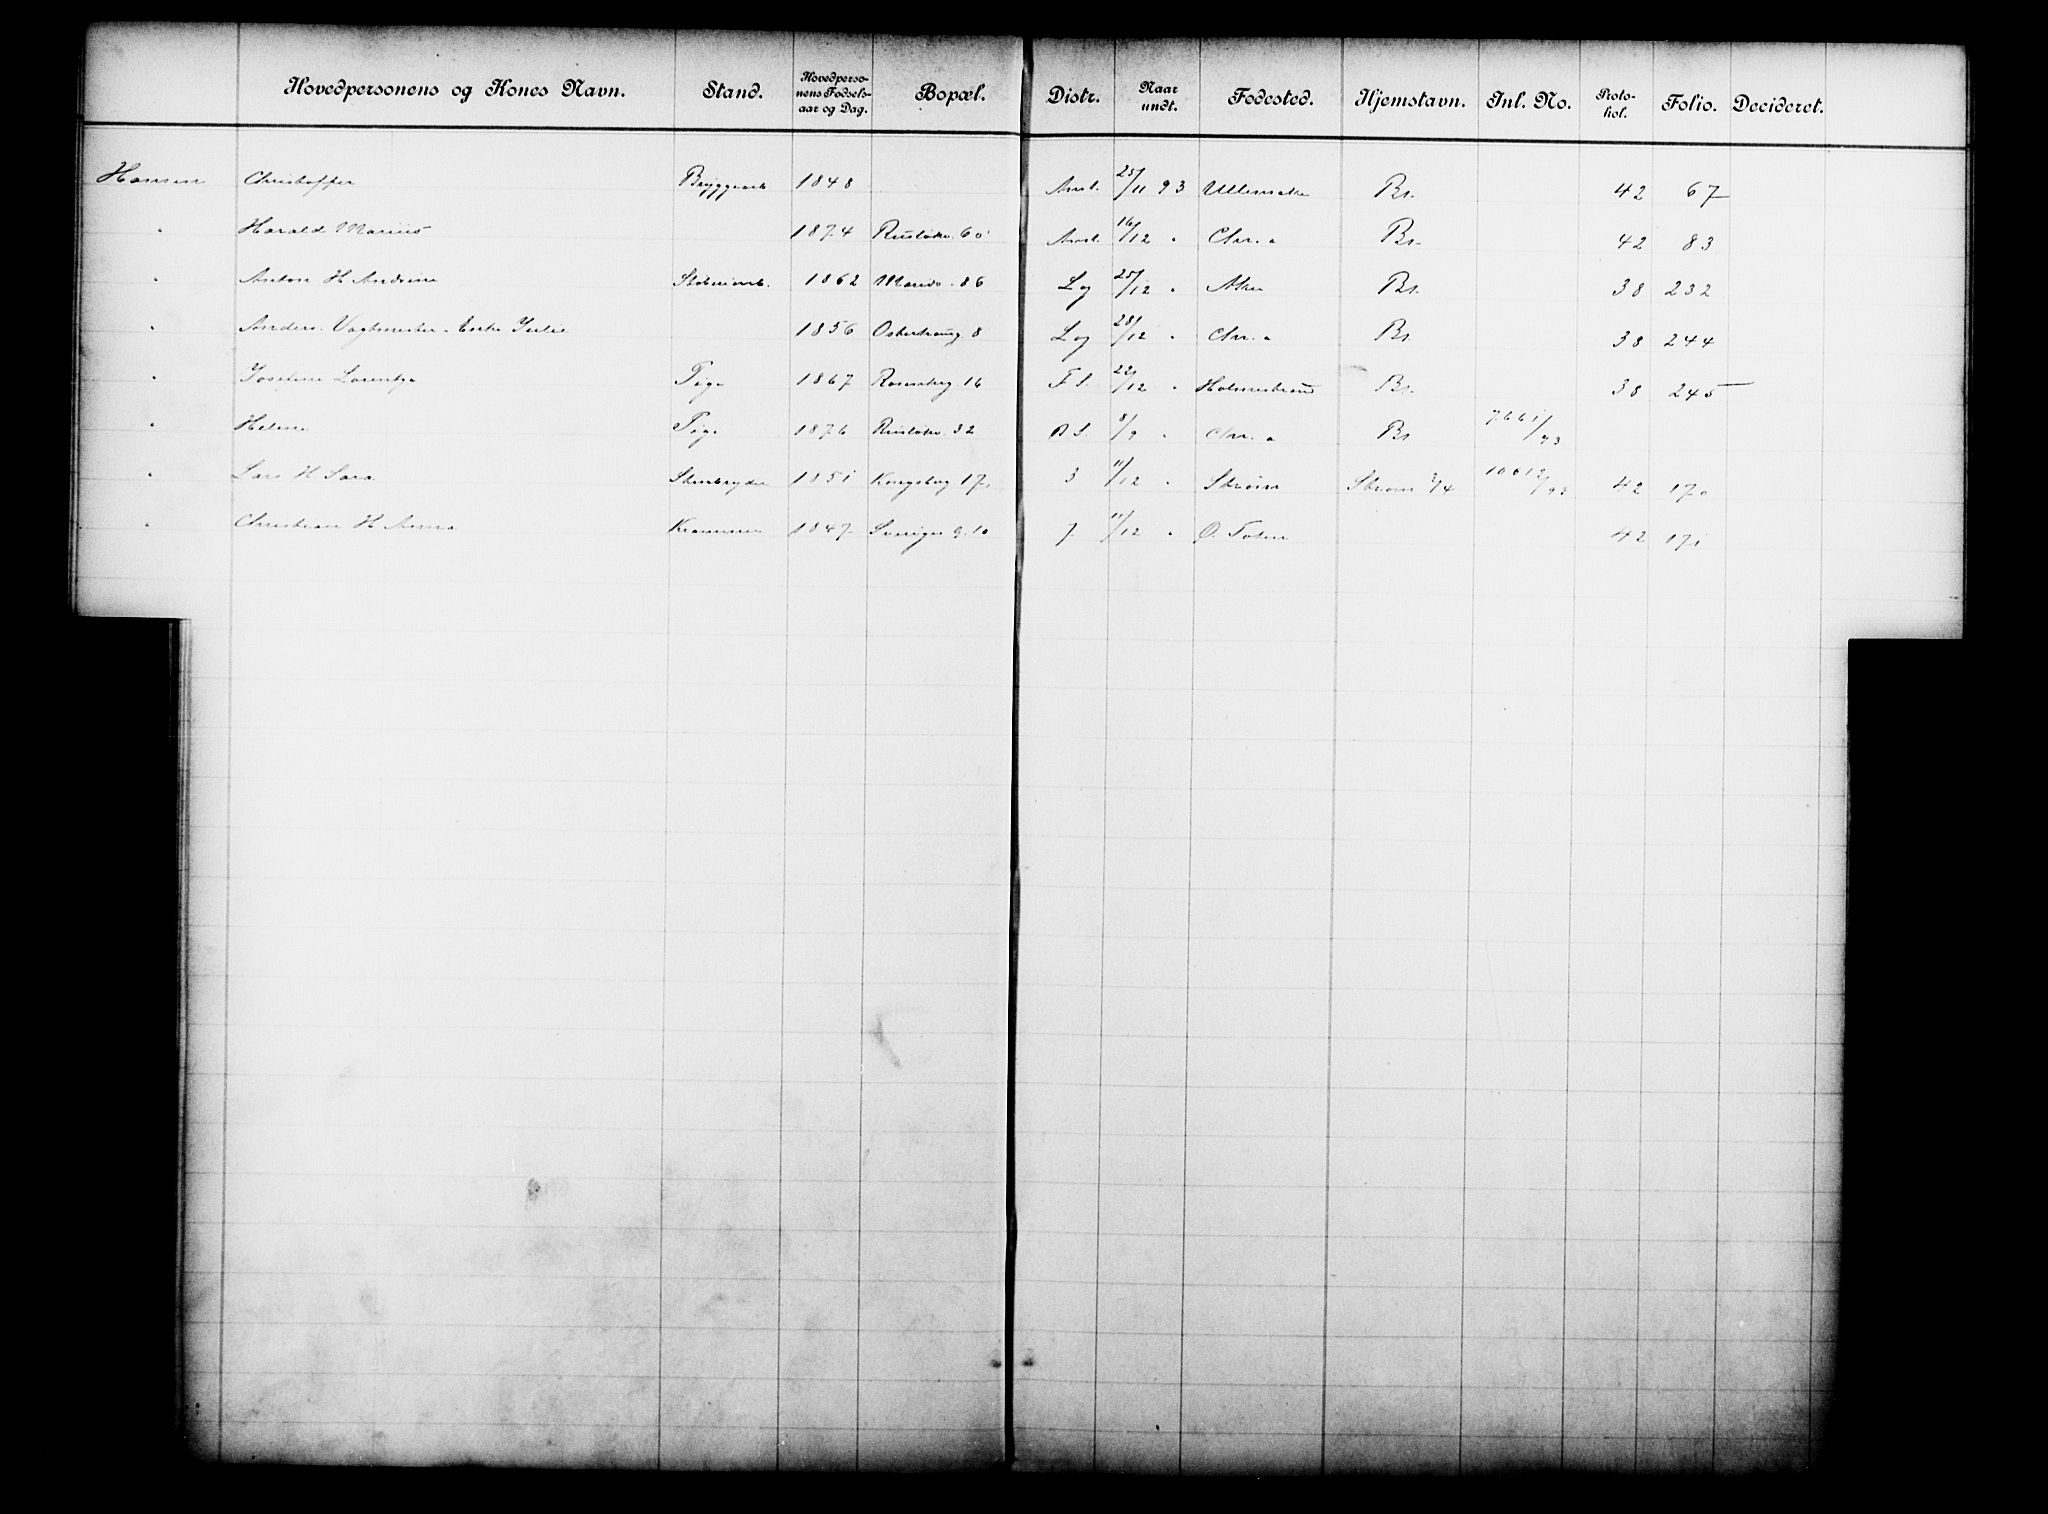 Hovedpersonens og Kones Navn. Stand. Hovedperso-nens Fødsels-aar og Dag. Bopæl. Distr. Naar undt. Fødested. Hjemstavn. Inl. No. Proto-kol. Folio. Decideret.
Hansen Christoffer Bryggearb 1848 Amt. 25/11 93 Ullensaker Bs. 42 67
" Harald Marius 1874 Ruseløkv. 60 Amt. 16/12 " Chr.a Bs. 42 83
" Anton H Andrine Støberiarb. 1862 Maridv. 86 Lg 25/12 " Aker Bs. 38 232
" Anders. Vagtmester. Enke Julie 1856 8 Lg 28/12 " Chr.a Bs 38 244
" Josefine Lorentza Pige 1867 Rosenbrg 16 F S. 22/12 " Holmestrand Bs. 38 245
" Helene Pige 1876 Ruseløkv. 32 8/9 " Chr.a Bs 7661/93
" Lars H Sara Stenbryder 1851 Kongsbrg 17 3 11/12 " Strøm Strøm 42 170
" Christian H Anna 1847 Sveriges g. 10 7 11/12 " Ø. Toten 42 171